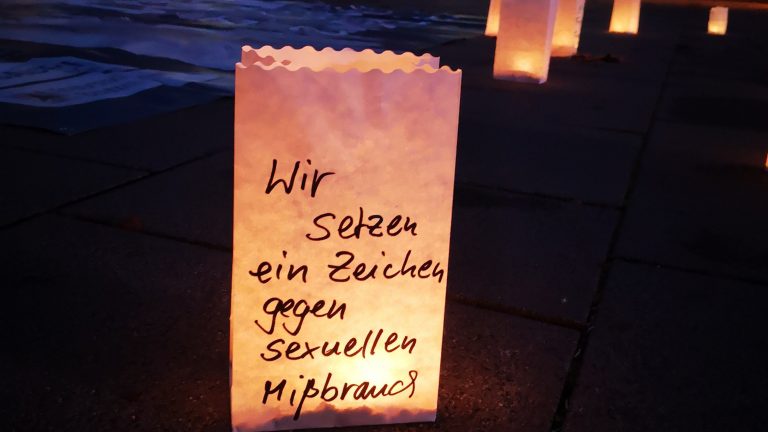 Wir
setzen
ein Zeichen
gegen
sexuellen
Mißbrauch